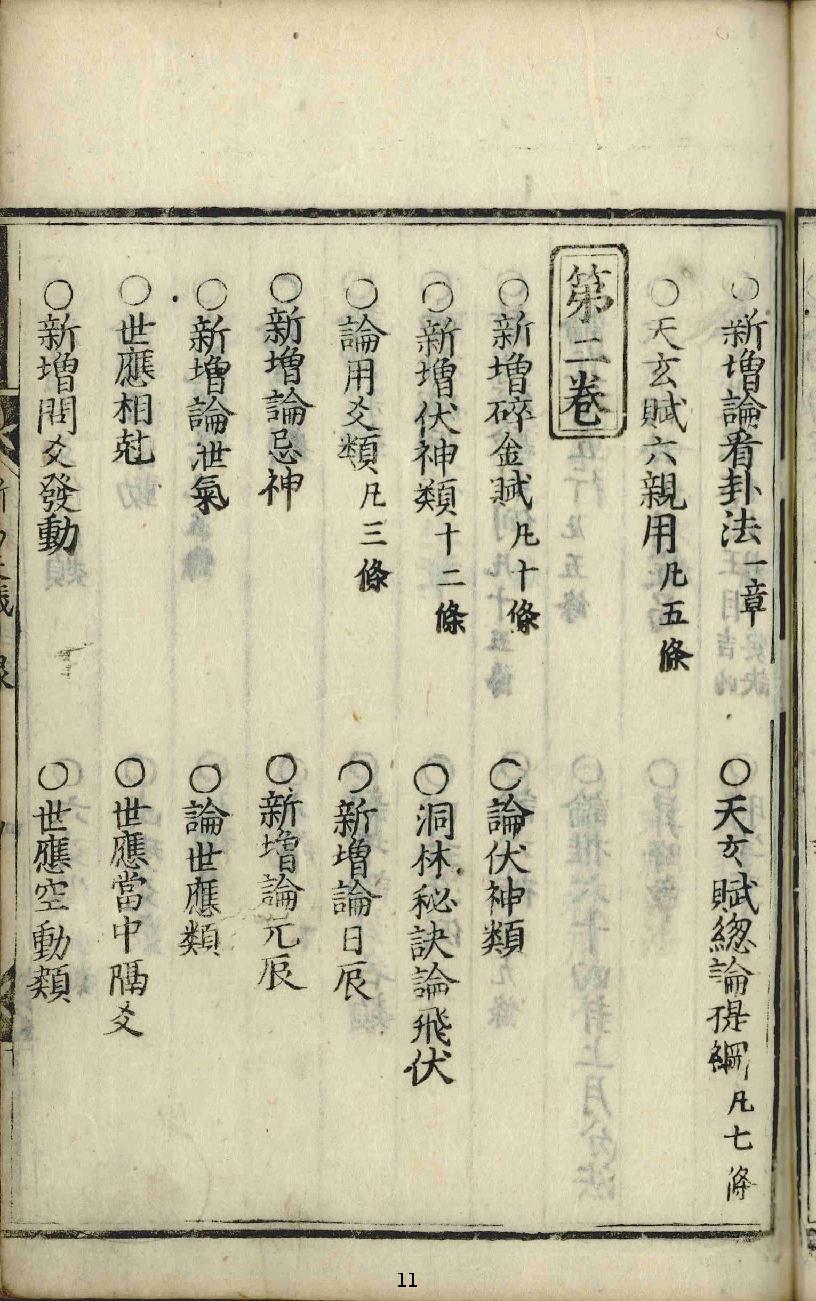 ○新增論看卦法一章　○天玄賦總論提綱凡七條
○天玄賦六親用凡五條
第二卷
○新增碎金賦凡十條　○論伏神類
○新增伏神類十二條　○洞林秘訣論飛伏
○論用爻類凡三條　○新增論日辰
○新增論忌神　○新增論元辰
○新增論泄氣　○論世應類
○世應相尅　○世應當中隔爻
○新增問爻發動　○世應空動類
11